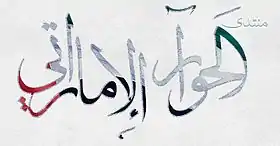 منتدى
الحوار الإماراتي